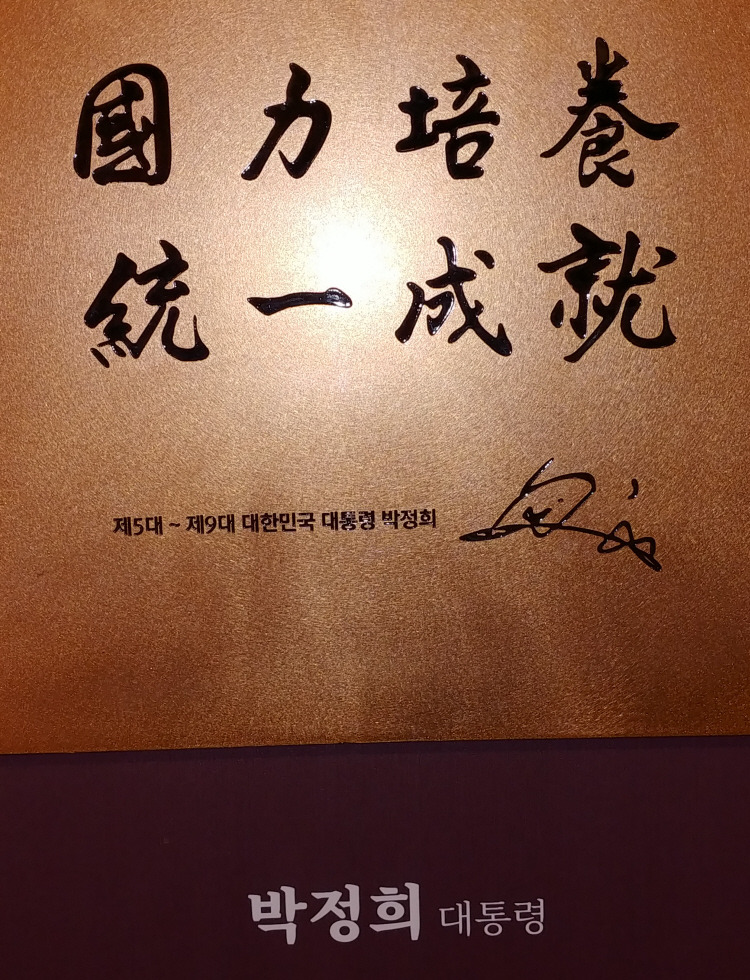 國力培養
統一成就
제5대 ~ 제9대 대한민국 대통령 박정희
박정희 대통령